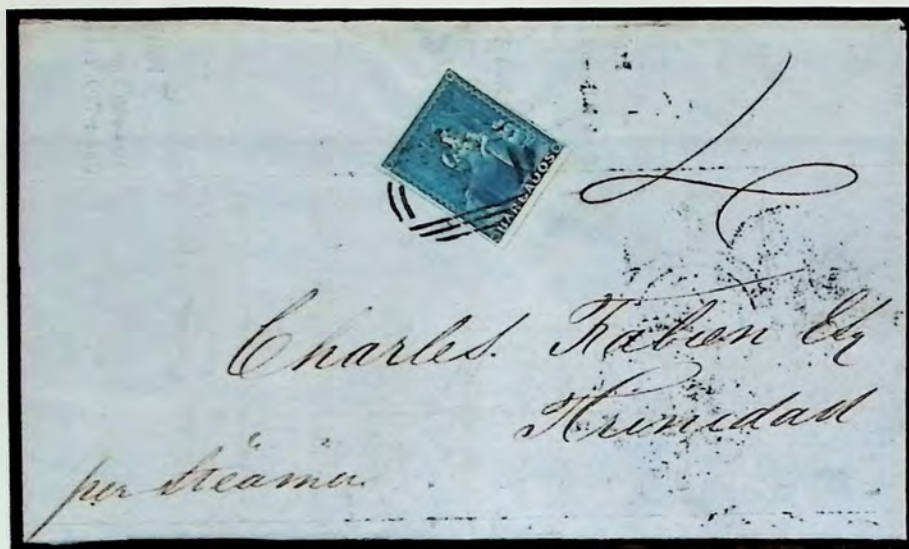 BARBADOS
4
Charles. Fabien Esq
Trinidad
per Steamer